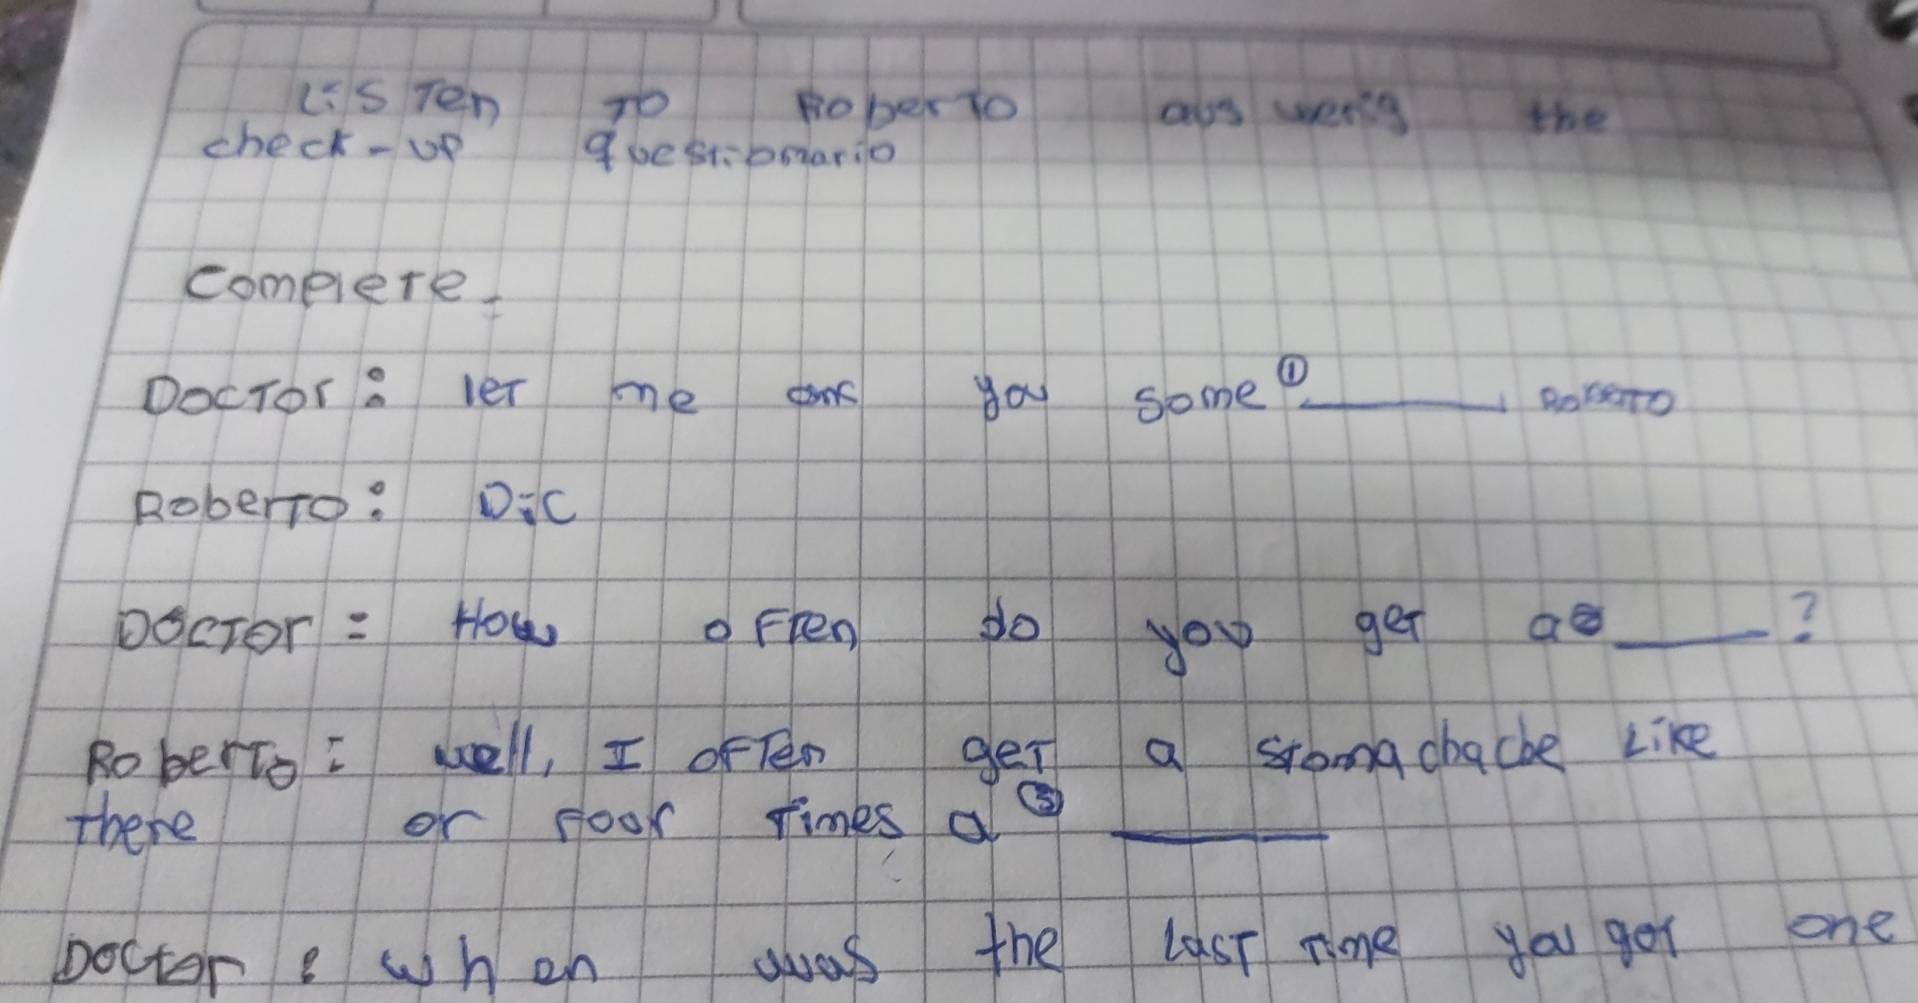 Listen to Roberto answerig the
check-up questionario
Complete
Doctor: let me you some ① ____ Roberto
Roberto: Oic
Doctor: How often do you get a ② ____?
Roberto: well, I often get a stomachache Like
there or foor Times a ③ ____
Doctor: when was the Last time you got one